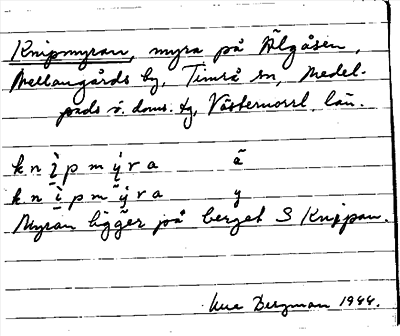 Knipmyran, myra på Älgåsen,
Mellangårds by, Timrå sn, Medel-
pads ö. doms. tg, Västernorrl. län.
k n ì p m ý r a ä
k n ì p m ỹ r a y
Myran ligger på berget S Knippan.
Bergman 1944.